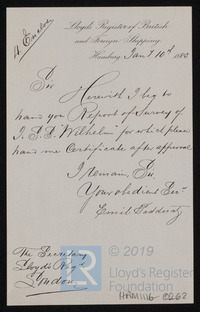 Lloyds Register of British
and Foreign Shipping
Hamburg Jany 10th 1883
Sir
Herewith I beg to
hand you Report of Survey of
S.S. Wilhelm for which please
hand me Certificate after approval
I remain, Sir
Your obedient
Emil
The Secretary
Lloyds Regr
London
© 2019
Lloyd's Register
Foundation
HAM116-0262